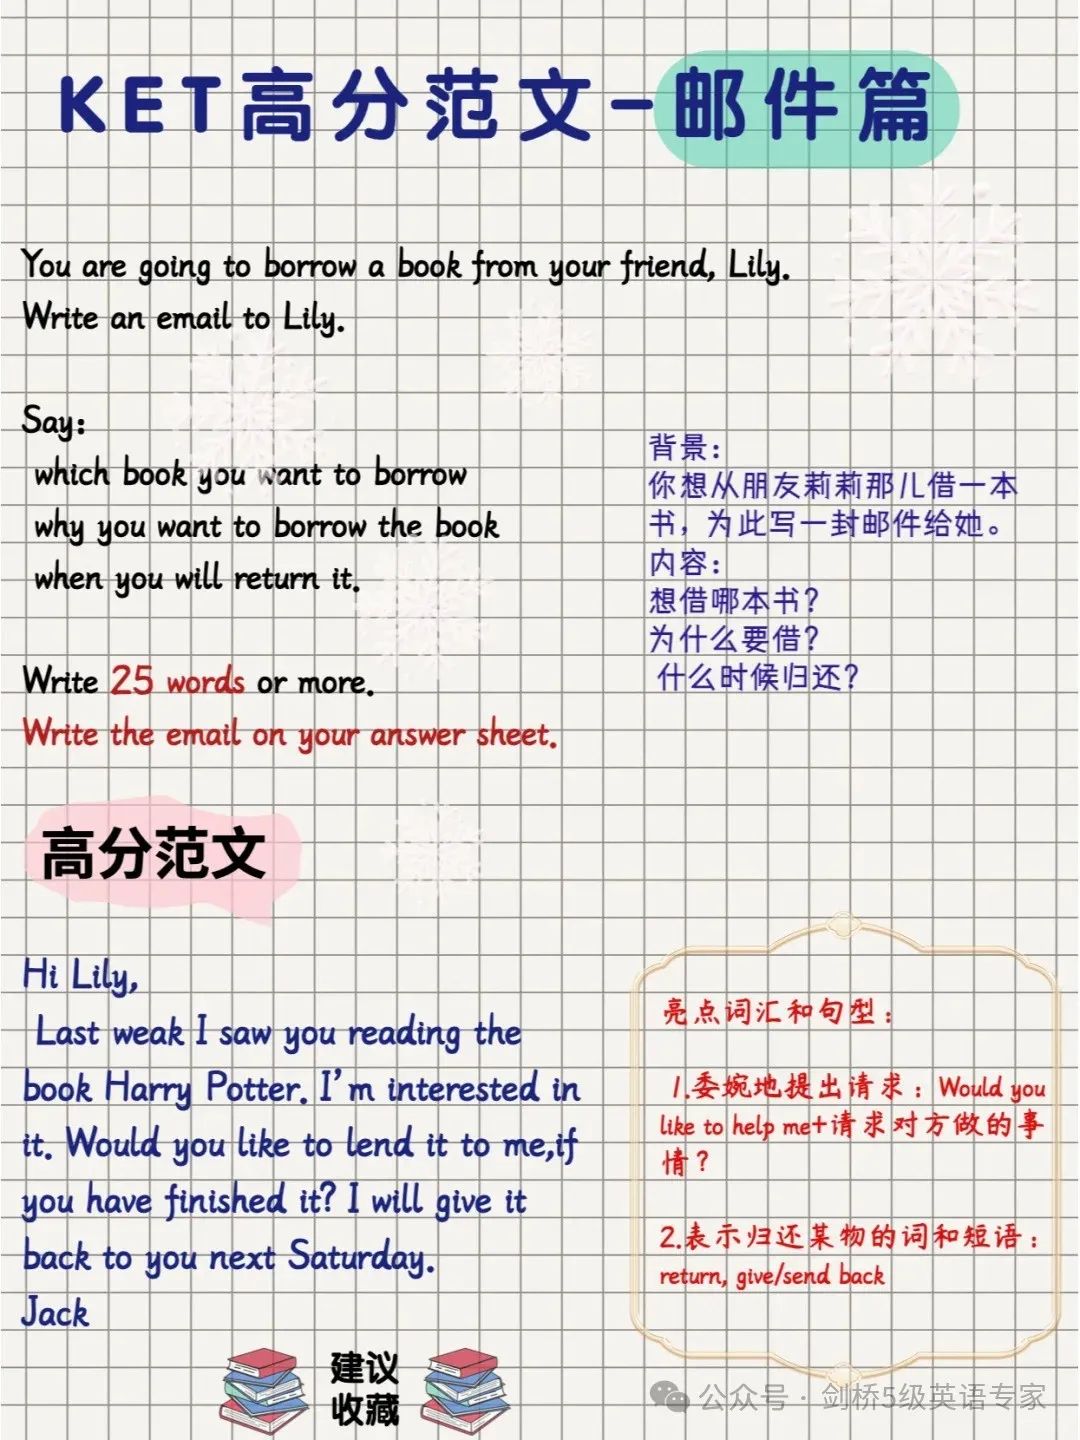 KET高分范文-邮件篇
You are going to borrow a book from your friend, Lily.
Write an email to Lily.
Say:
which book you want to borrow
why you want to borrow the book
when you will return it.
Write 25 words or more.
Write the email on your answer sheet.
背景：
你想从朋友莉莉那儿借一本
书，为此写一封邮件给她。
内容：
想借哪本书？
为什么要借？
什么时候归还？
高分范文
Hi Lily,
Last weak I saw you reading the
book Harry Potter. I'm interested in
it. Would you like to lend it to me,if
you have finished it? I will give it
back to you next Saturday.
Jack
亮点词汇和句型：
1.委婉地提出请求：Would you
like to help me+请求对方做的事
情？
2.表示归还某物的词和短语：
return, give/send back
建议
收藏
公众号·剑桥5级英语专家